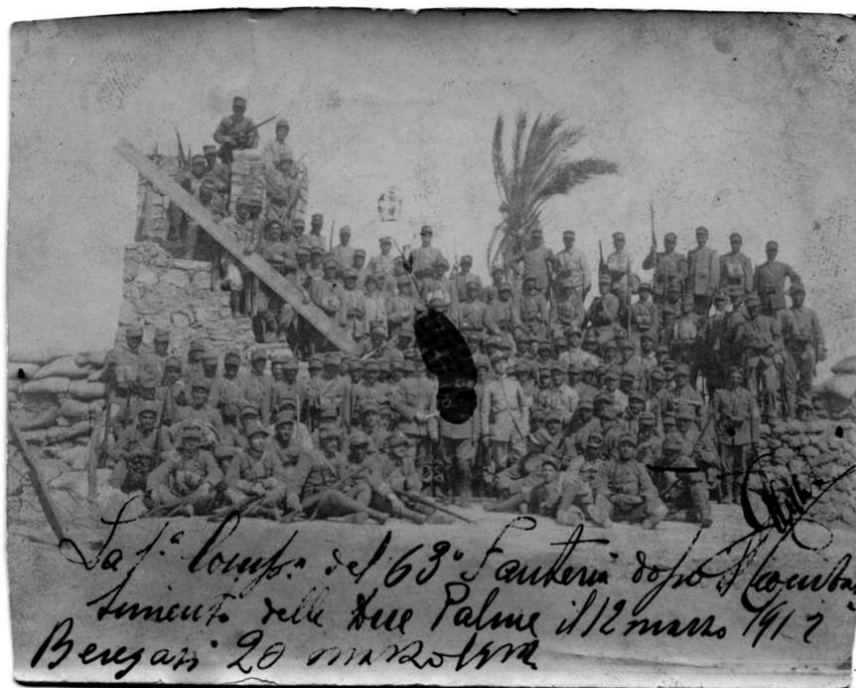 La 1ª Comp.ª del 63º Fanteria dopo il combat
timento delle Due Palme il 12 marzo 1912
Bengasi 20 marzo 1912